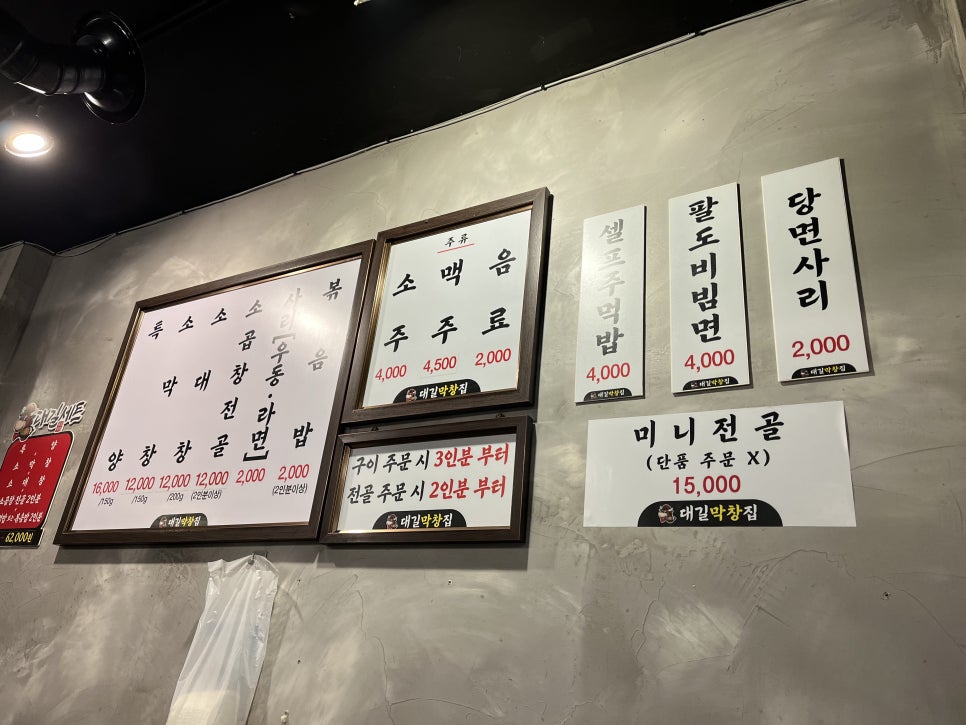 대길세트
62,000원
특양
16,000
/150g
소막창
12,000
/150g
소대창
12,000
/200g
소곱창전골
12,000
(2인분이상)
사리[우동·라면]
2,000
볶음밥
2,000
(2인분이상)
대길막창집
주류
소주
4,000
맥주
4,500
음료
2,000
대길막창집
구이 주문 시 3인분 부터
전골 주문 시 2인분 부터
대길막창집
셀프주먹밥
4,000
대길막창집
팔도비빔면
4,000
대길막창집
당면사리
2,000
대길막창집
미니전골
(단품 주문 X)
15,000
대길막창집